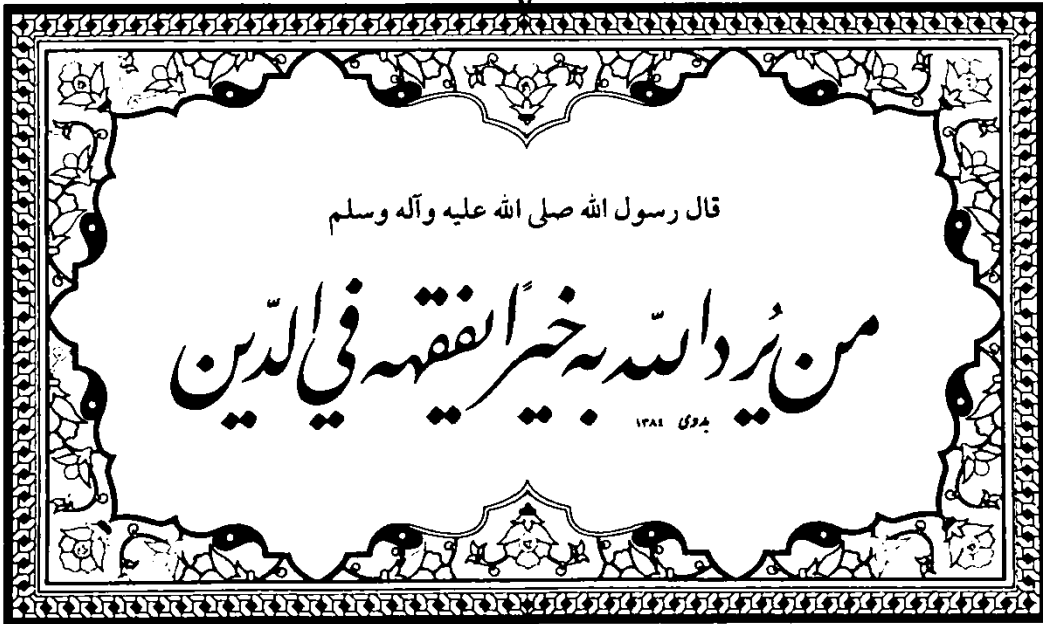 قال رسول الله صلى الله عليه وآله وسلم
من يُرد اللّه به خيرًا يفقهه في الدّين
بدوي ١٣٨٤